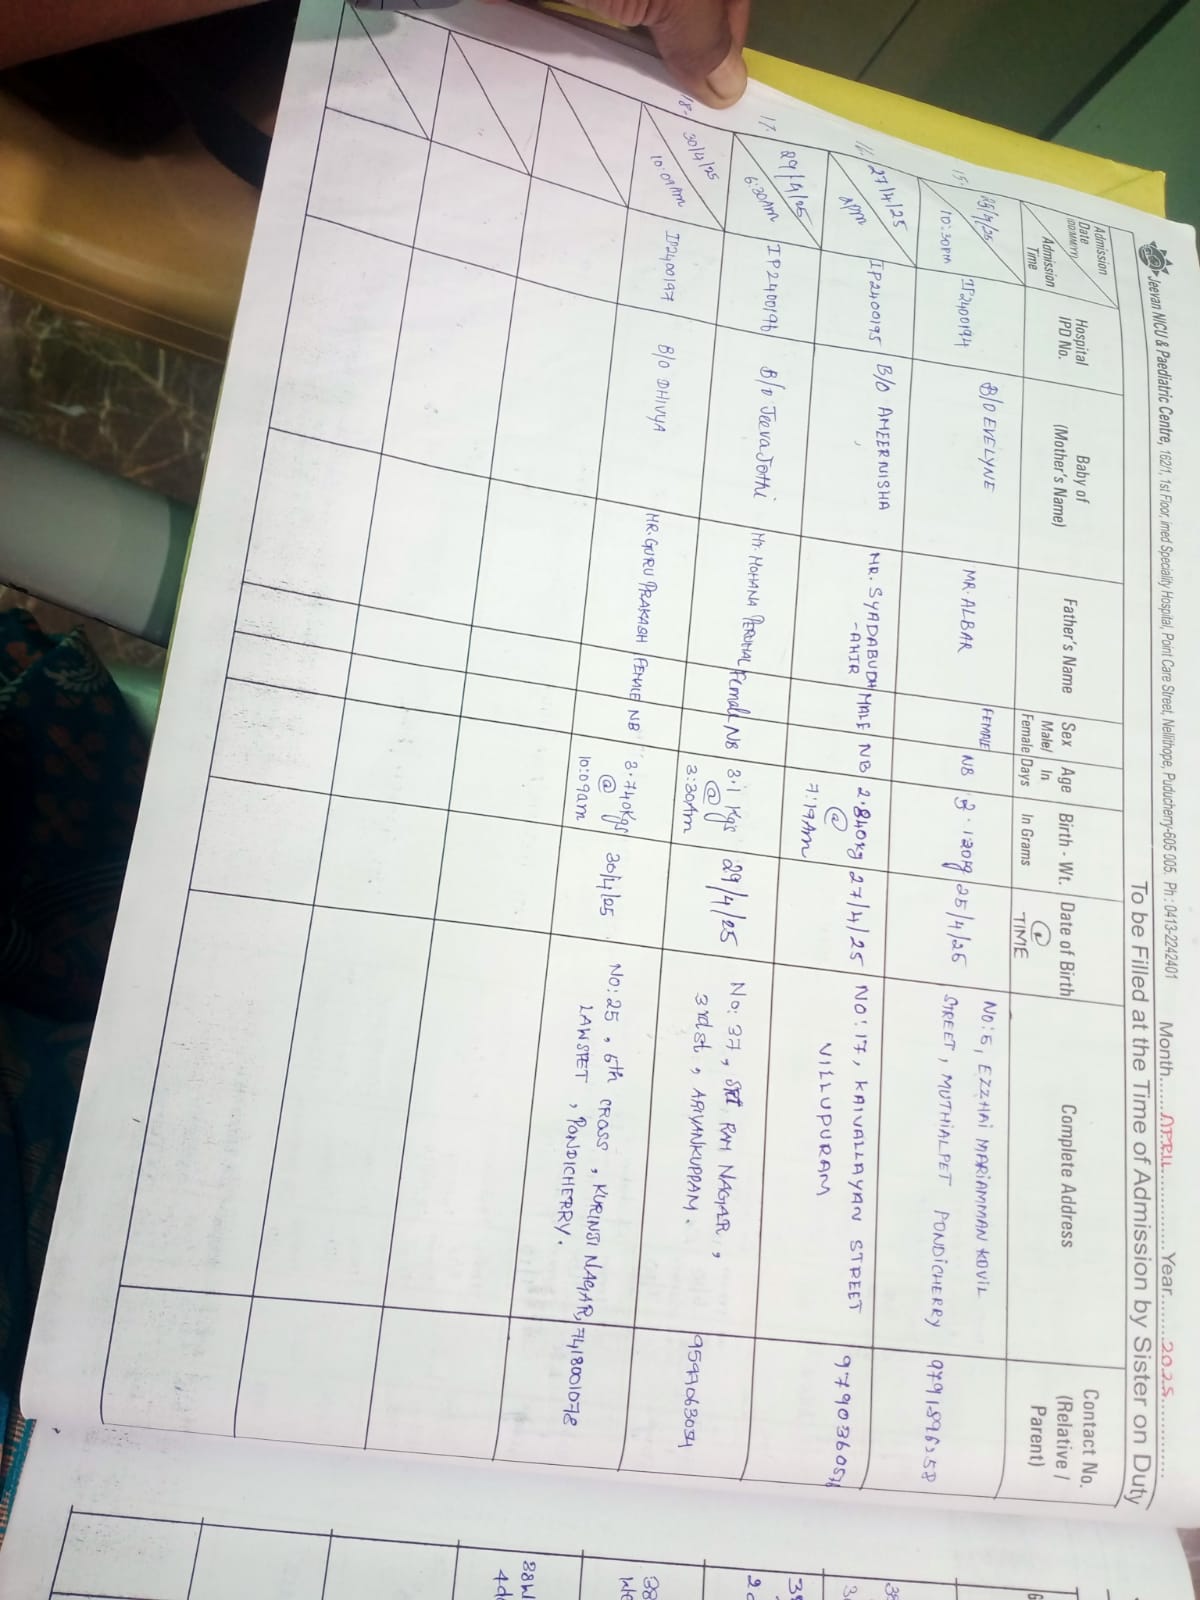 Jeevan NICU & Paediatric Centre, 162/1, 1st Floor, imed Speciality Hospital, Point Care Street, Nellithope, Puducherry-605 005. Ph : 0413-2242401 Month......APRIL..............Year........2025..............
To be Filled at the Time of Admission by Sister on Duty
Admission Date (DD/MM/YY) Admission Time
Hospital IPD No.
Baby of (Mother's Name)
Father's Name
Sex Male/ Female
Age In Days
Birth - Wt. In Grams
Date of Birth @ TIME
Complete Address
Contact No. (Relative / Parent)
15. 25/4/25 10:30PM IP2400194 B/O EVELYNE MR. ALBAR FEMALE NB 3.120kg 25/4/25
NO: 5, EZZHAI MARIAMMAN KOVIL
STREET, MUTHIALPET PONDICHERRY 9791896258
16. 27/4/25 IP2400195 B/O AMEERNISHA MR. SYADABUDH -AHIR MALE NB 2.840kg @ 7:19Am 27/4/25
NO: 17, KAIVALLAYAN STREET
VILLUPURAM 9790360576
17. 29/4/25 6:30AM IP2400196 B/O JeevaJothi Mr. MOHANA PERUMAL Female NB 3.1 Kgs @ 3:30Am 29/4/25
No: 37, SRI RAM NAGAR,
3rd st, ARIYANKUPPAM. 9597063054
18. 30/4/25 10:09Am IP2400197 B/O DHIVYA MR. GURU PRAKASH FEMALE NB 3.740Kgs @ 10:09am 30/4/25
NO: 25, 5th CROSS, KURINJI NAGAR,
LAWSPET, PONDICHERRY. 7418001078